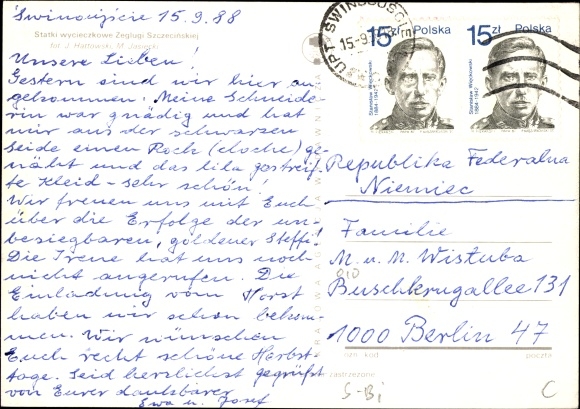 Świnoujście 15.9.88
Statki wycieczkowe Żeglugi Szczecińskiej
fot. J. Hattowski, M. Jasiecki
Unsere Lieben!
Gestern sind wir hier an-
gekommen. Meine Schneide-
rin war gnädig und hat
mir aus der schwarzen
Seide einen Rock (cloche) ge-
näht und das lila gestreif-
te Kleid - sehr schön!
Wir freuen uns mit Euch
über die Erfolge der un-
besiegbaren, goldener Steffi!
Die Irene hat uns noch
nicht angerufen. Die
Einladung vom Horst
haben wir schon bekom-
men. Wir wünschen
Euch recht schöne Herbst-
tage. Seid herzlichst gegrüßt
von Eurer dankbarer
Ewa u. Josef
UPT ŚWINOUJŚCIE
15-9
15 zł Polska
Stanisław Więckowski
1884-1942
15 zł Polska
Stanisław Więckowski
1884-1942
Republika Federalna
Niemiec
Familie
M. u. M. Wistuba
Buschkrugallee 131
1000 Berlin 47
ozn. kod.
poczta
zastrzeżone
S-Bi
C